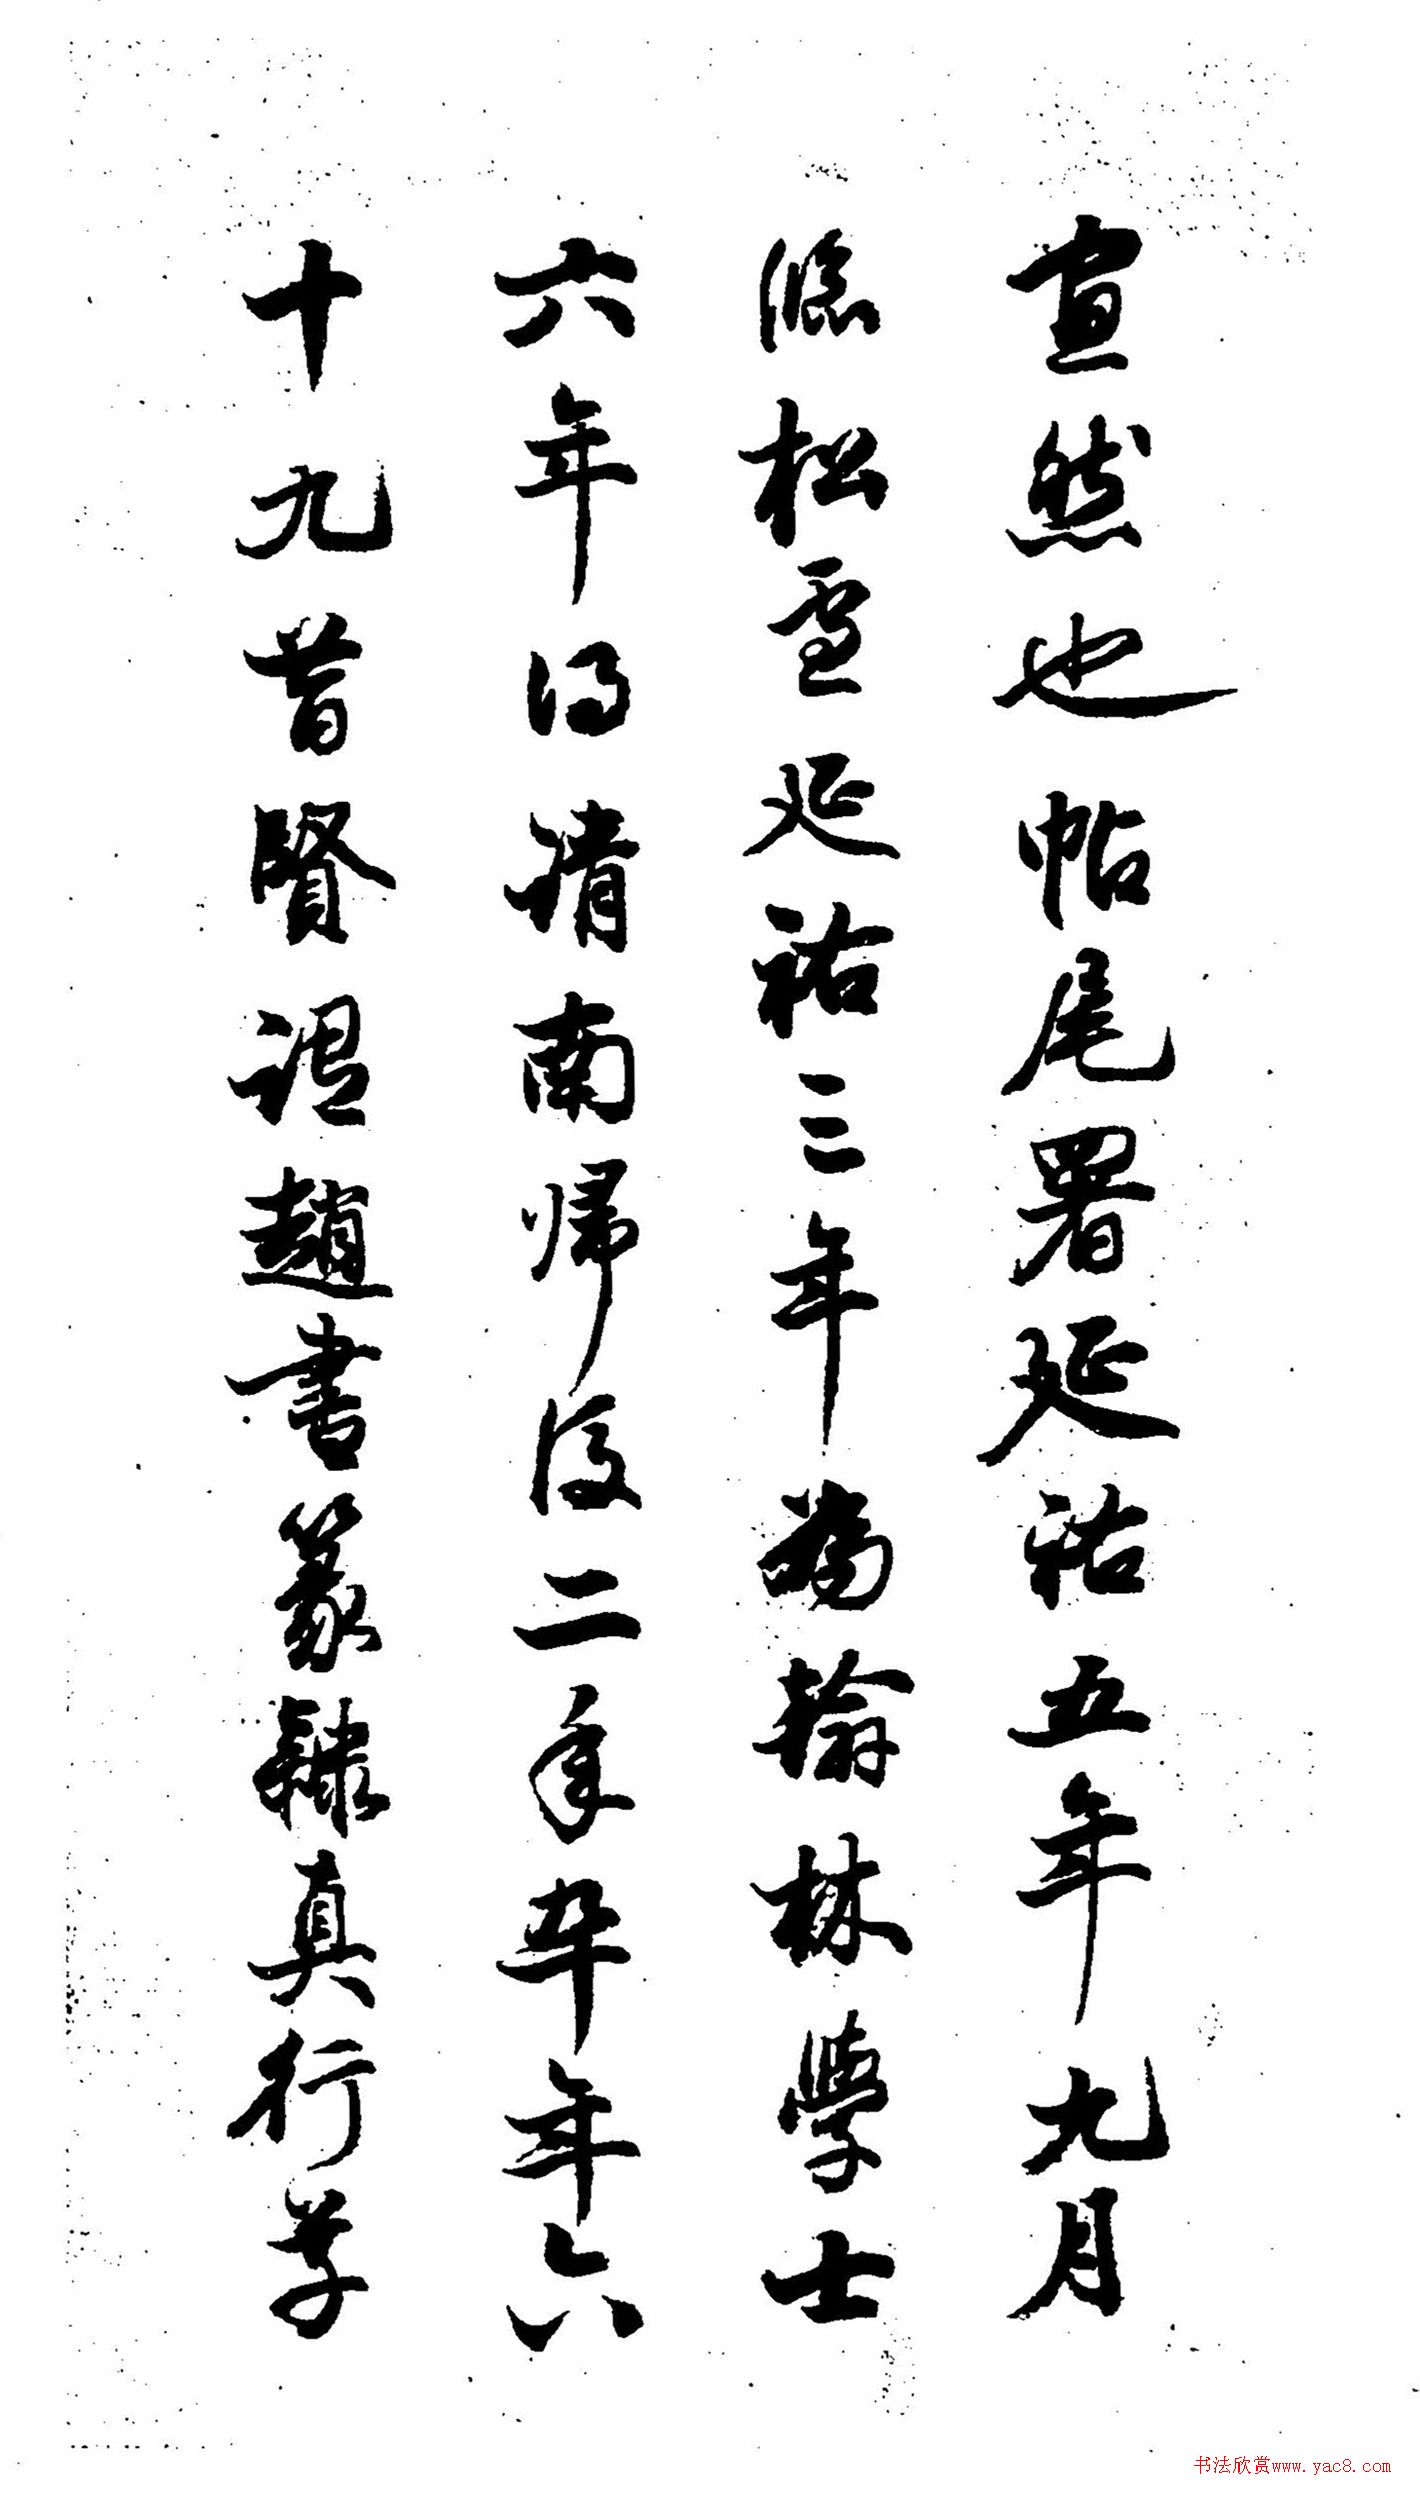 宜然也帖尾署延祐五年九月
臨松雪延祐三年為翰林學士
六年得請南歸後二年卒年六
十九昔賢謂趙書篆隸真行草
书法欣赏www.yac8.com